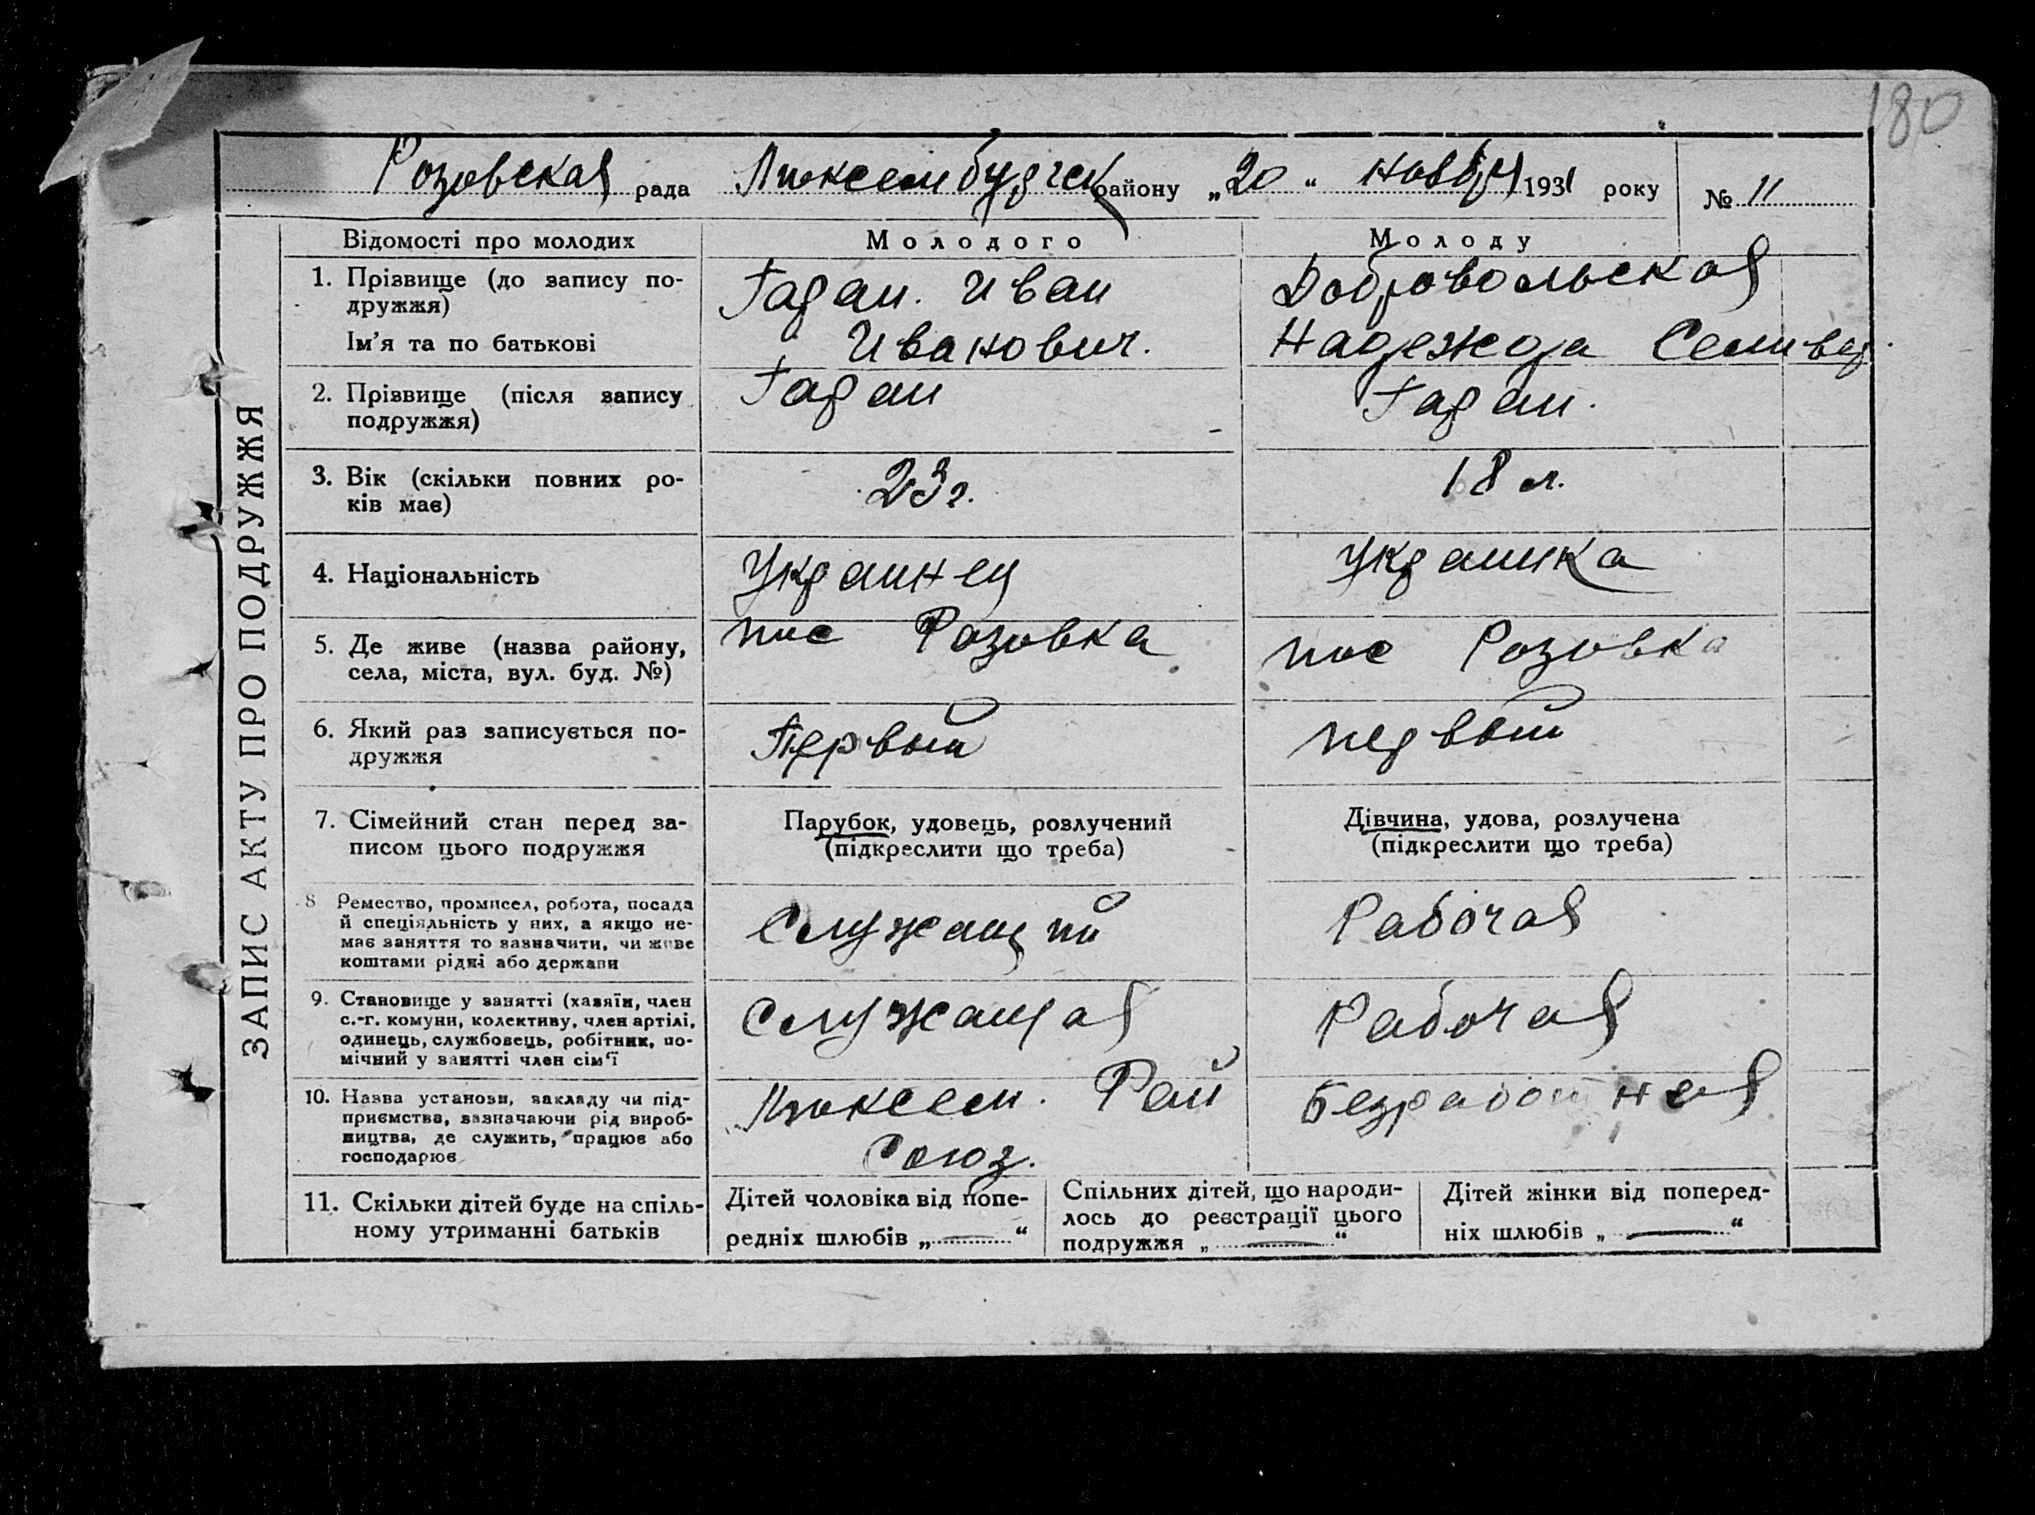 180
Розовская рада Люксембургск району „20“ ноября 1931 року № 11
ЗАПИС АКТУ ПРО ПОДРУЖЖЯ
Відомості про молодих
Молодого
Молоду
1. Прізвище (до запису по-
дружжя)
Ім’я та по батькові
Иван
Иванович.
Добровольская
Надежда
2. Прізвище (після запису
подружжя)
3. Вік (скільки повних ро-
ків має)
23 г.
18 л.
4. Національність
Украинец
Украинка
5. Де живе (назва району,
села, міста, вул. буд. №)
пос Розовка
пос Розовка
6. Який раз записується по-
дружжя
Первый
первый
7. Сімейний стан перед за-
писом цього подружжя
Парубок, удовець, розлучений
(підкреслити що треба)
Дівчина, удова, розлучена
(підкреслити що треба)
8 Ремество, промисел, робота, посада
й спеціяльність у них, а якщо не-
має заняття то зазначити, чи живе
коштами рідні або держави
Служащий
Рабочая
9. Становище у занятті (хазяїн, член
с.-г. комуни, колективу, член артілі,
одинець, службовець, робітник, по-
мічний у занятті член сім‘ї
Служащая
Рабочая
10. Назва установи, закладу чи під-
приємства, зазначаючи рід вироб-
ництва, де служить, працює або
господарює
Люксем. Рай
Союз.
Безработная
11. Скільки дітей буде на спіль-
ному утриманні батьків
Дітей чоловіка від попе-
редніх шлюбів „—“
Спільних дітей, що народи-
лось до реєстрації цього
подружжя „—“
Дітей жінки від поперед-
ніх шлюбів „—“